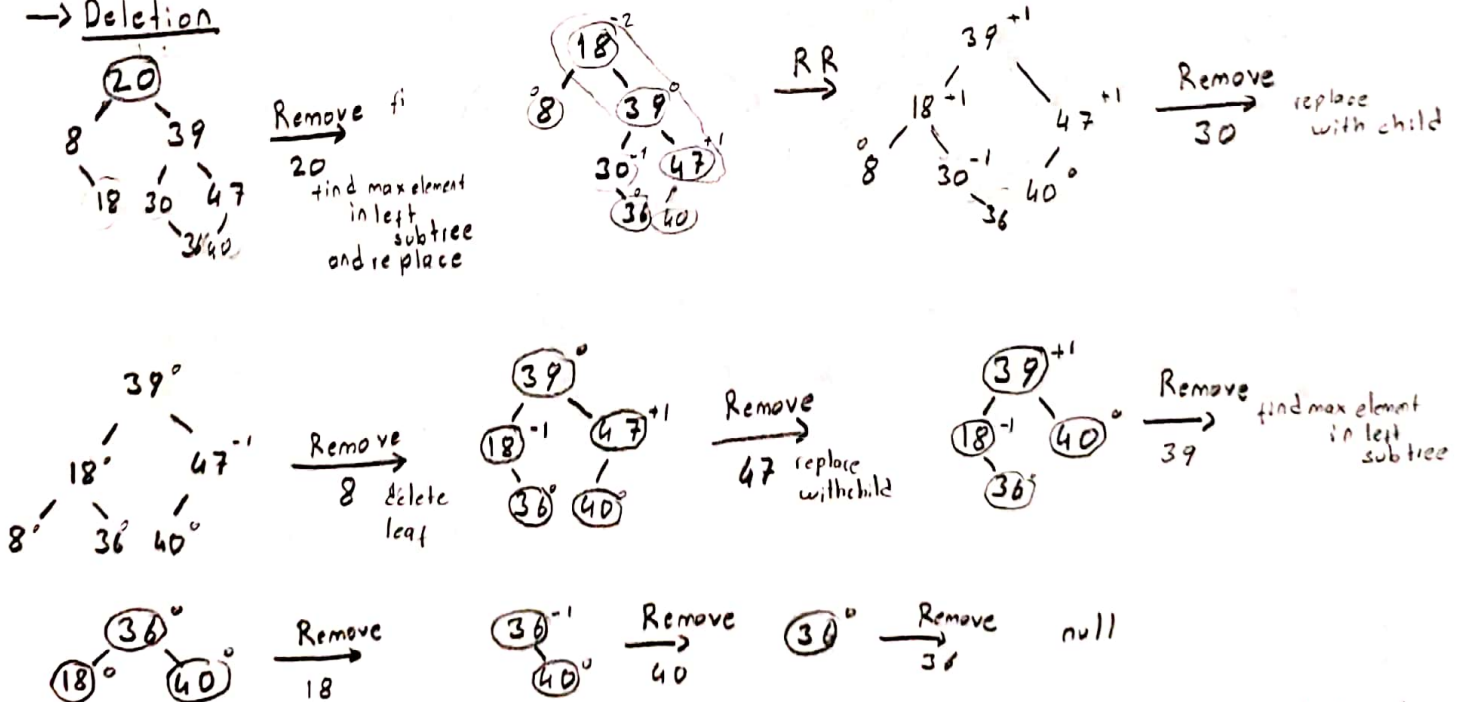 → Deletion
20
8 39
18 30 47
36 40
Remove fi
20
find max element
in left
subtree
and replace
18 -2
8 0 39 0
30 -1 47 +1
36 0 40
RR
39 +1
18 +1 47 +1
8 0 30 -1 40 0
36
Remove
30
replace
with child
39 0
18 0 47 -1
8 0 36 0 40 0
Remove
8 delete
leaf
39 0
18 -1 47 +1
36 0 40 0
Remove
47 replace
withchild
39 +1
18 -1 40 0
36 0
Remove
39
find max element
in left
subtree
36 0
18 0 40 0
Remove
18
36 -1
40 0
Remove
40
36 0
Remove
36
null